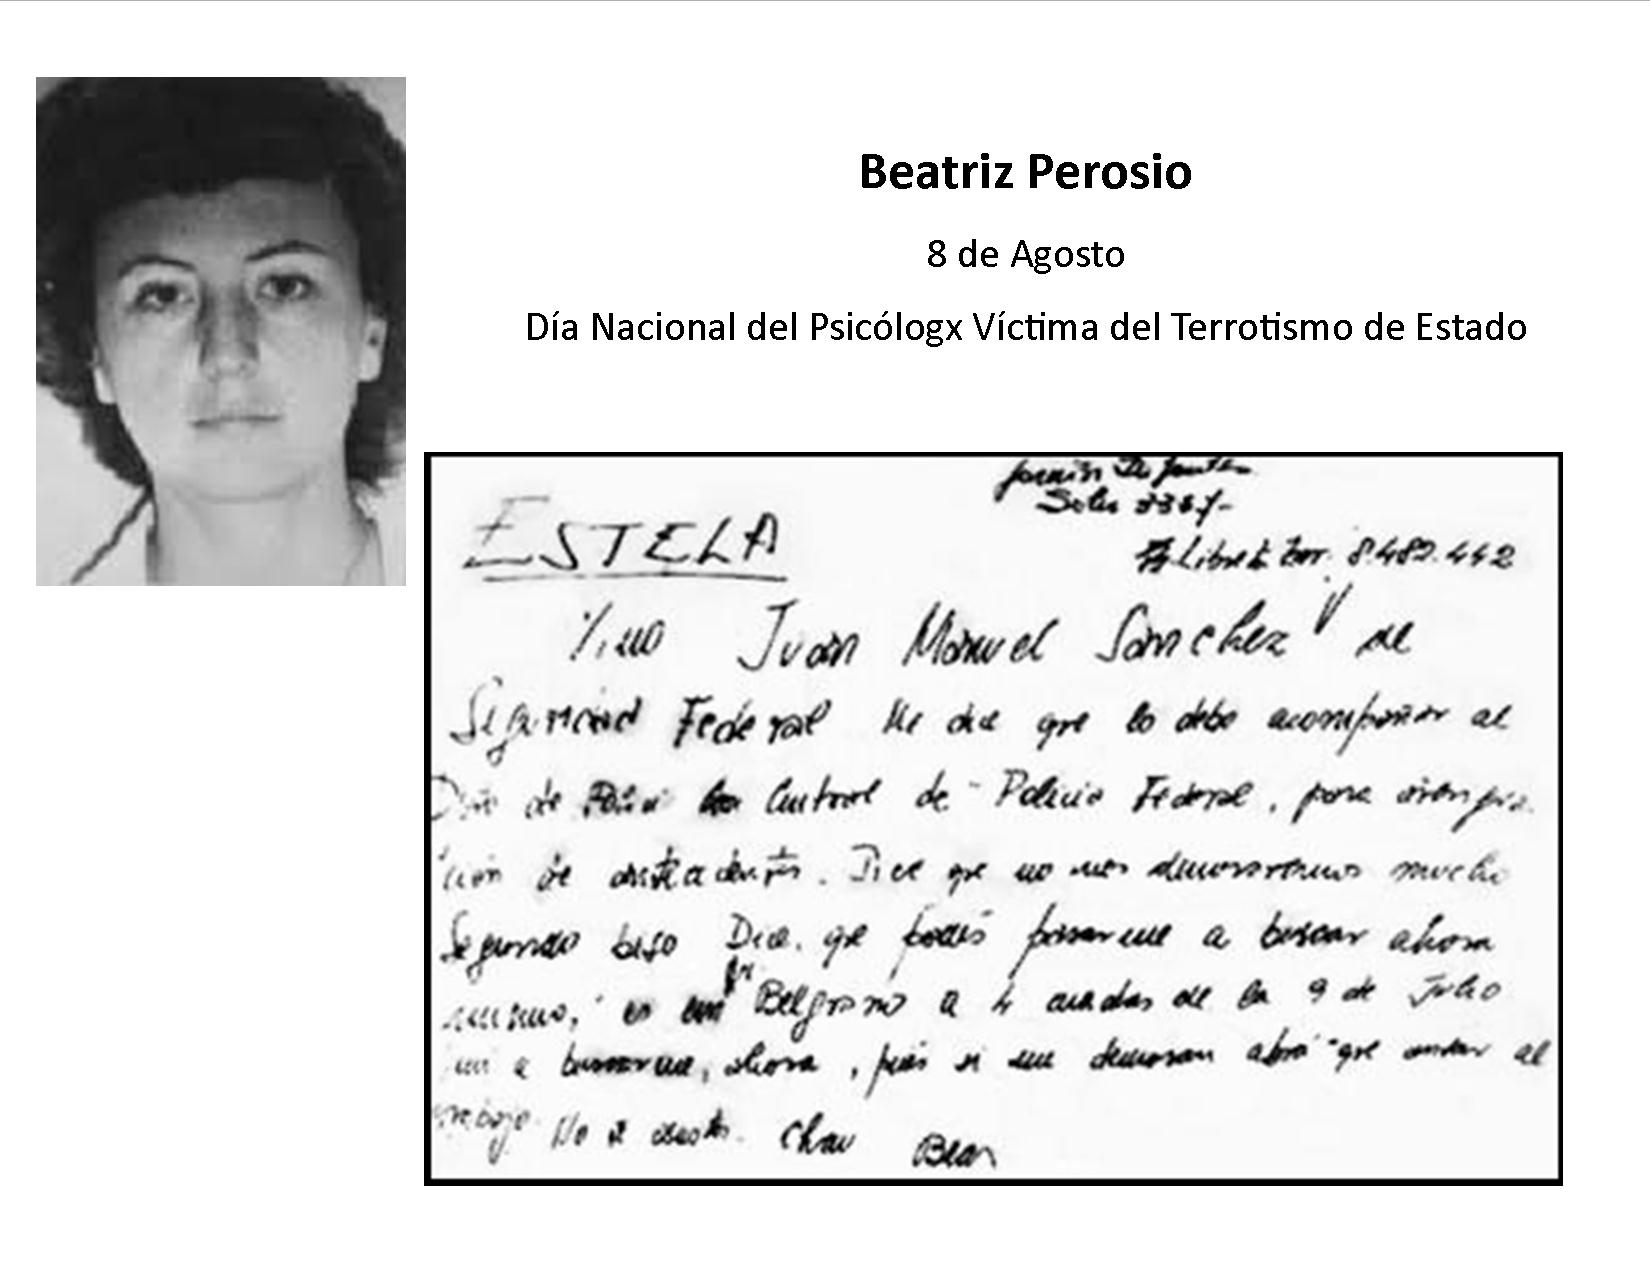 Beatriz Perosio
8 de Agosto
Día Nacional del Psicólogx Víctima del Terrotismo de Estado
Solis
Libreta 8.482.442
ESTELA
Juan Manuel Sánchez de
Seguridad Federal Me dice que lo debo acompañar al
de Central de Policia Federal, para
ción de antecedentes. Dice que no nos demoraremos mucho
Segundo piso Dice que podés pasarme a buscar ahora
mismo, es en Belgrano a 4 cuadras de la 9 de Julio
a buscarme, ahora, pues si me demoran abrá que avisar al
trabajo. No te asustes. Chau Bea